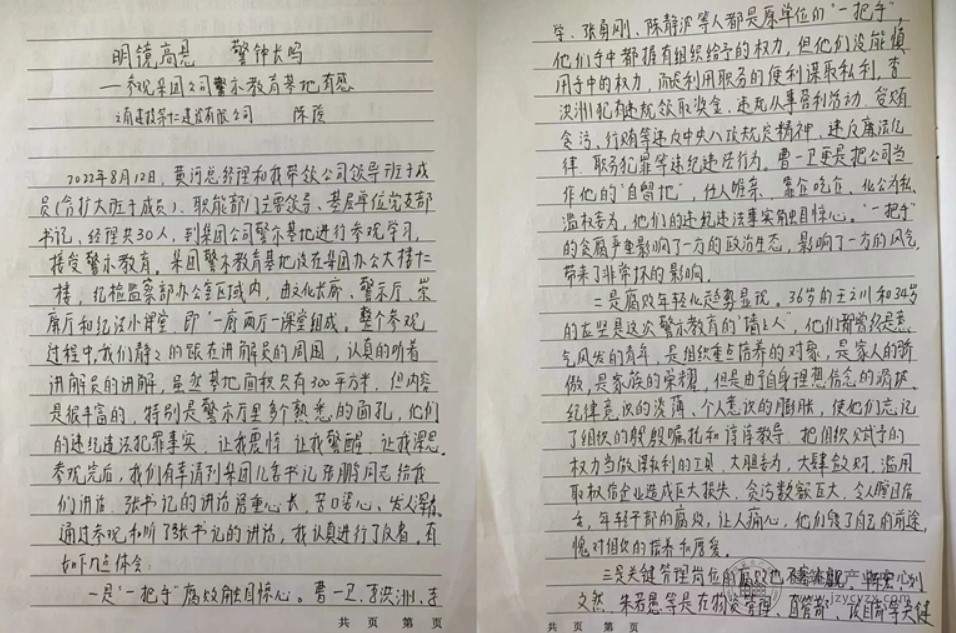 明镜高悬 警钟长鸣
—参观集团公司警示教育基地有感
建投第十二建设有限公司 陈
2022年8月12日，黄河总经理和我带领公司领导班子成
员（含扩大班子成员）、职能部门主要领导、基层单位党支部
书记、经理共30人，到集团公司警示基地进行参观学习，
接受警示教育。集团警示教育基地设在集团办公大楼十二
楼，纪检监察部办公室区域内，由文化长廊、警示厅、崇
廉厅和纪法小课堂，即“一廊两厅一课堂组成。整个参观
过程中，我们静静的跟在讲解员的周围，认真的听着
讲解员的讲解，虽然基地面积只有300平方米，但内容
是很丰富的，特别是警示厅里多个熟悉的面孔，他们
的违纪违法犯罪事实，让我震惊，让我警醒，让我深思。
参观完后，我们有幸请到集团纪委书记张鹏同志给我
们讲话，张书记的讲话语重心长，苦口婆心、发人深省。
通过参观和听了张书记的讲话，我认真进行了反省，有
如下几点体会：
一是“一把手”腐败触目惊心。曹一卫、李洪洲、李
学、张勇刚、陈静波等人都是原单位的“一把手”，
他们手中都握有组织给予的权力，但他们没能慎
用手中的权力，而是利用职务的便利谋取私利，李
洪洲犯有违规领取奖金、违规从事营利活动、受贿
贪污、行贿等违反中央八项规定精神、违反廉洁纪
律、职务犯罪等违纪违法行为。曹一卫更是把公司当
作他的“自留地”，任人唯亲、靠企吃企、化公为私、
滥权妄为，他们的违纪违法事实触目惊心。“一把手”
的贪腐严重影响了一方的政治生态，影响了一方的风气，
带来了非常坏的影响。
二是腐败年轻化趋势显现。36岁的王之川和34岁
的 是这次警示教育的“墙上人”，他们都曾经是意
气风发的青年，是组织重点培养的对象，是家人的骄
傲，是家族的荣耀，但是由于自身理想信念的滑坡、
纪律意识的淡薄、个人意识的膨胀，使他们忘记
了组织的殷殷嘱托和谆谆教导，把组织赋予的
权力当做谋私利的工具，大胆妄为，大肆敛财，滥用
职权给企业造成巨大损失，贪污数额巨大，令人瞠目结
舌，年轻干部的腐败，让人痛心，他们毁了自己的前途，
愧对组织的培养和厚爱。
三是关键管理岗位的腐败也不容
文然、朱若愚等是在物资管理、 等关键
www.jzycyzx.com
共 页 第 页
共 页 第 页